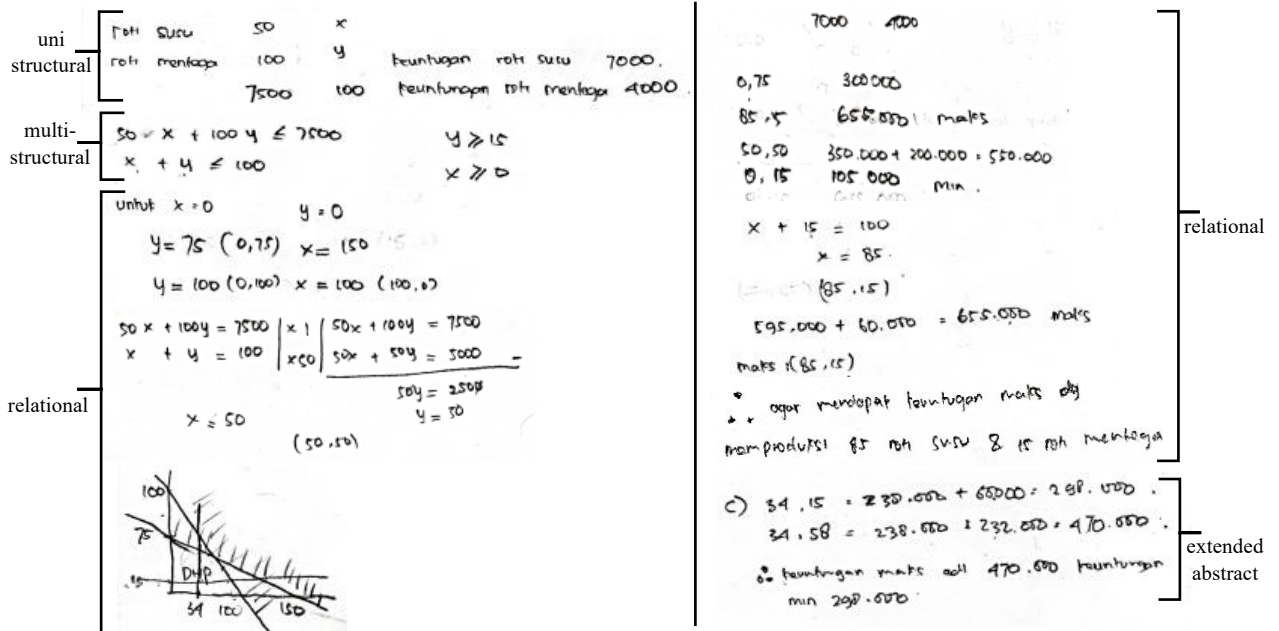 uni
structural
roti susu 50 x
roti mentega 100 y keuntugan roti susu 7000.
7500 100 keuntungan roti mentega 4000.
multi-
structural
50 x + 100 y ≤ 7500 y ≥ 15
x + y ≤ 100 x ≥ 0
relational
untuk x = 0 y = 0
y = 75 (0,75) x = 150
y = 100 (0,100) x = 100 (100,0)
50x + 100y = 7500 | x 1 | 50x + 100y = 7500
x + y = 100 | x50 | 50x + 50y = 5000 -
50y = 2500
x = 50 y = 50
(50,50)
100
75
15
DHP
34 100 150
7000 4000
0,75 300000
85,15 655.000 maks
50,50 350.000 + 200.000 = 550.000
0,15 105 000 min.
x + 15 = 100
x = 85.
(85,15)
595.000 + 60.000 = 655.000 maks
maks (85,15)
∴ agar mendapat keuntugan maks dg
memproduksi 85 roti susu & 15 roti mentega
relational
c) 34,15 = 238.000 + 60000 = 298.000.
34,58 = 238.000 + 232.000 = 470.000.
∴ keuntungan maks adl 470.000 keuntungan
min 298.000
extended
abstract